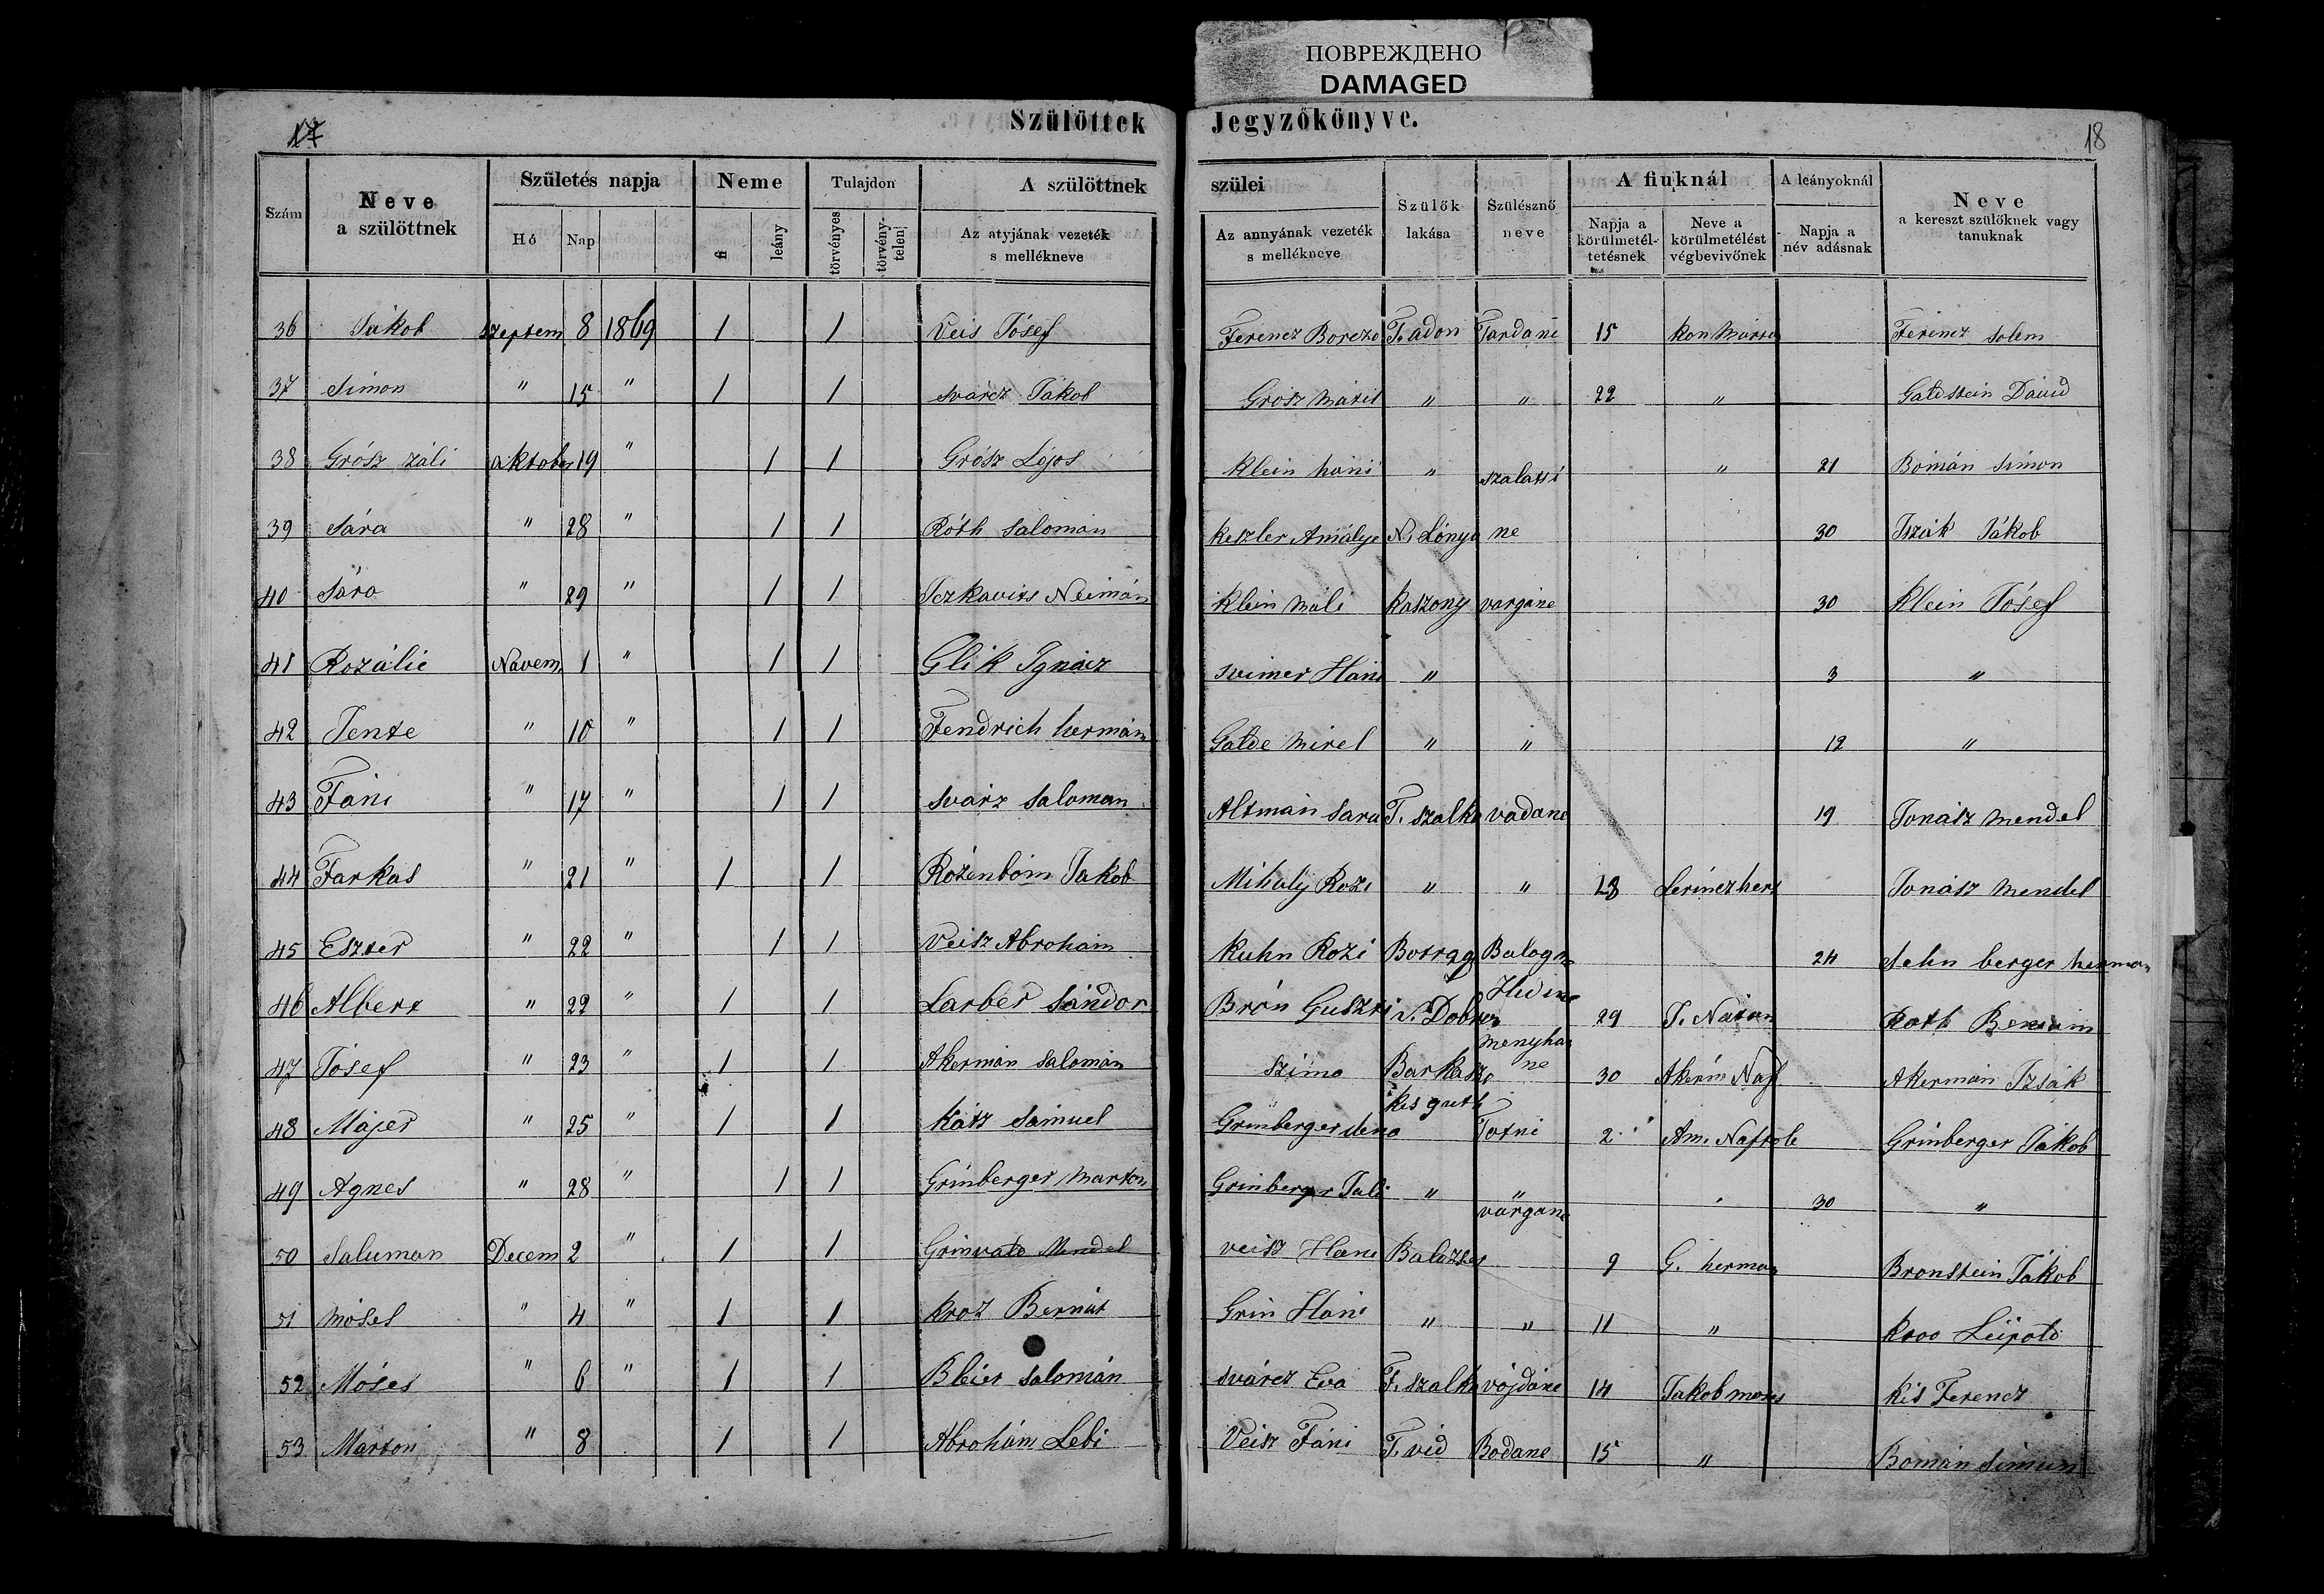 ПОВРЕЖДЕНО
DAMAGED
17 Szülöttek Jegyzőkönyve. 18
Szám Neve a szülöttnek Születés napja Hó Nap Neme fi leány Tulajdon törvényes törvény-telen A szülöttnek szülei Az atyjának vezeték s mellékneve Az annyának vezeték s mellékneve Szülők lakása Szülésznő neve A fiuknál Napja a körülmetél-tetésnek Neve a körülmetélést végbevivőnek A leányoknál Napja a név adásnak Neve a kereszt szülőknek vagy tanuknak
36 Jákob Szeptem 8 1869 1 1 Veis Jósef Ferencz Borcza T. adon Tardané 15 Ferencz Solem
37 Simon " 15 " 1 1 Svarcz Jákob Grósz Matil " " 22 " Galdstein Dávid
38 Grósz Záli aktober 19 " 1 1 Grósz Lajos Klein háni " szalatsi " 21 Bomán Simon
39 Sára " 28 " 1 1 Róth Saloman Keszler Amálye N. Lónya ne 30 Iszák Jákob
40 Sára " 29 " 1 1 Iczkavits Neimán Klein Máli Kaszony vargáne 30 Klein Jósef
41 Rozálie Navem 1 " 1 1 Glik Ignácz Sveimer Háni " 3 "
42 Jente " 10 " 1 1 Fendrich hermán Galde Mirel " " 12 "
43 Fáni " 17 " 1 1 Svarz Saloman Altmán Sara T. szalka vadane 19 Jonász Mendel
44 Farkas " 21 " 1 1 Rózenbóm Jakob Mihaly Rozi " " 28 Lerincz herz Jonász Mendel
45 Eszter " 22 " 1 1 Veisz Abrohám Kuhn Rozi Botragy Balogne 24 Sehn berger herman
46 Albert " 22 " 1 1 Larber Sándor Brón Guszti 29 J. Nátan Roth
47 Jósef " 23 " 1 1 Akermán Salomán Szima Barkaszo ne 30 Akerm Naf Akermán Izsák
48 Májer " 25 " 1 1 Kátz Sámuel Grinberger Lena Kis guth Totni 2 Am. Naftole Grinberger Jákob
49 Agnes " 28 " 1 1 Grinberger Marton Grinberger Juli " " 30 "
50 Saluman Decem 2 " 1 1 Grinvald Mendel Veisz Hani Balázser vargane 9 G. herman Bronstein Jákob
51 Móses " 4 " 1 1 Kroz Bernát Grin Háni " " 11 " Kroo Leipold
52 Móses " 6 " 1 1 Bleier Salomán Svárcz Eva T. szalka vójdáne 14 Jakob moses Kis Ferencz
53 Marton " 8 1 1 Abrohám Lebi Veisz Fáni T. vid Bodane 15 " Bomán Simun